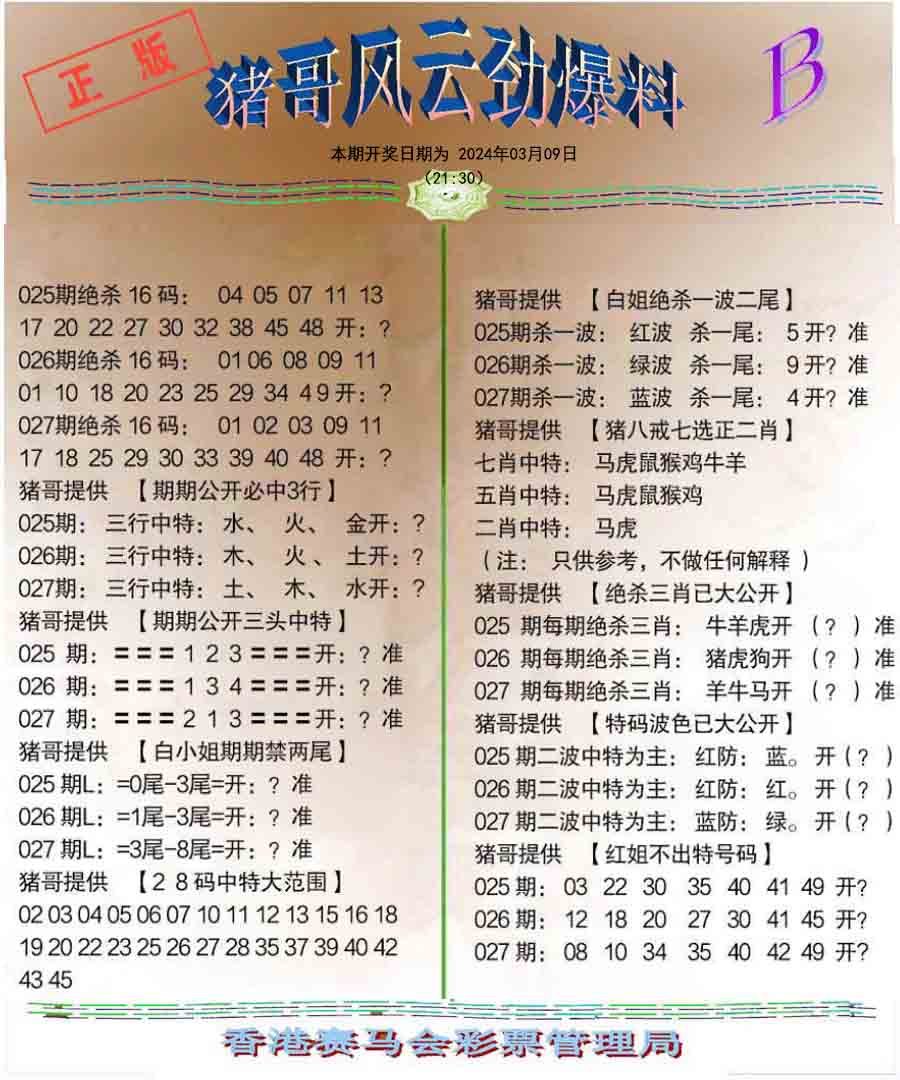 正版
猪哥风云劲爆料
B
本期开奖日期为 2024年03月09日
(21:30)
025期绝杀16码： 04 05 07 11 13
17 20 22 27 30 32 38 45 48 开：？
026期绝杀16码： 01 06 08 09 11
01 10 18 20 23 25 29 34 49开：？
027期绝杀16码： 01 02 03 09 11
17 18 25 29 30 33 39 40 48 开：？
猪哥提供 【期期公开必中3行】
025期：三行中特：水、 火、 金开：？
026期：三行中特：木、 火、 土开：？
027期：三行中特：土、 木、 水开：？
猪哥提供 【期期公开三头中特】
025 期：＝＝＝1 2 3＝＝＝开：？准
026 期：＝＝＝1 3 4＝＝＝开：？准
027 期：＝＝＝2 1 3＝＝＝开：？准
猪哥提供 【白小姐期期禁两尾】
025期L：=0尾-3尾=开：？准
026期L：=1尾-3尾=开：？准
027期L：=3尾-8尾=开：？准
猪哥提供 【28码中特大范围】
02 03 04 05 06 07 10 11 12 13 15 16 18
19 20 22 23 25 26 27 28 35 37 39 40 42
43 45
猪哥提供 【白姐绝杀一波二尾】
025期杀一波： 红波 杀一尾： 5开？准
026期杀一波： 绿波 杀一尾： 9开？准
027期杀一波： 蓝波 杀一尾： 4开？准
猪哥提供 【猪八戒七选正二肖】
七肖中特： 马虎鼠猴鸡牛羊
五肖中特： 马虎鼠猴鸡
二肖中特： 马虎
（注： 只供参考，不做任何解释）
猪哥提供 【绝杀三肖已大公开】
025 期每期绝杀三肖： 牛羊虎开 （？）准
026 期每期绝杀三肖： 猪虎狗开 （？）准
027 期每期绝杀三肖： 羊牛马开 （？）准
猪哥提供 【特码波色已大公开】
025期二波中特为主：红防：蓝。开（？）
026期二波中特为主：红防：红。开（？）
027期二波中特为主：蓝防：绿。开（？）
猪哥提供 【红姐不出特号码】
025期： 03 22 30 35 40 41 49 开？
026期： 12 18 20 27 30 41 45 开？
027期： 08 10 34 35 40 42 49 开？
香港赛马会彩票管理局